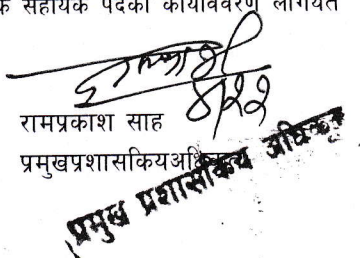 सहायक पदको कार्यविवरण लगायत
रामप्रकाश साह
प्रमुखप्रशासकियअधिकृत
प्रमुख प्रशासकिय अधिकृत